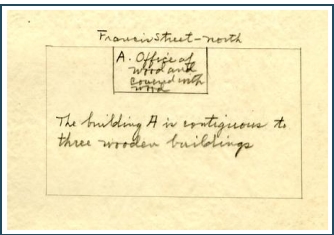 Francis Street - north
A. Office of
wood and
covered with
wood
The building A is contiguous to
three wooden buildings